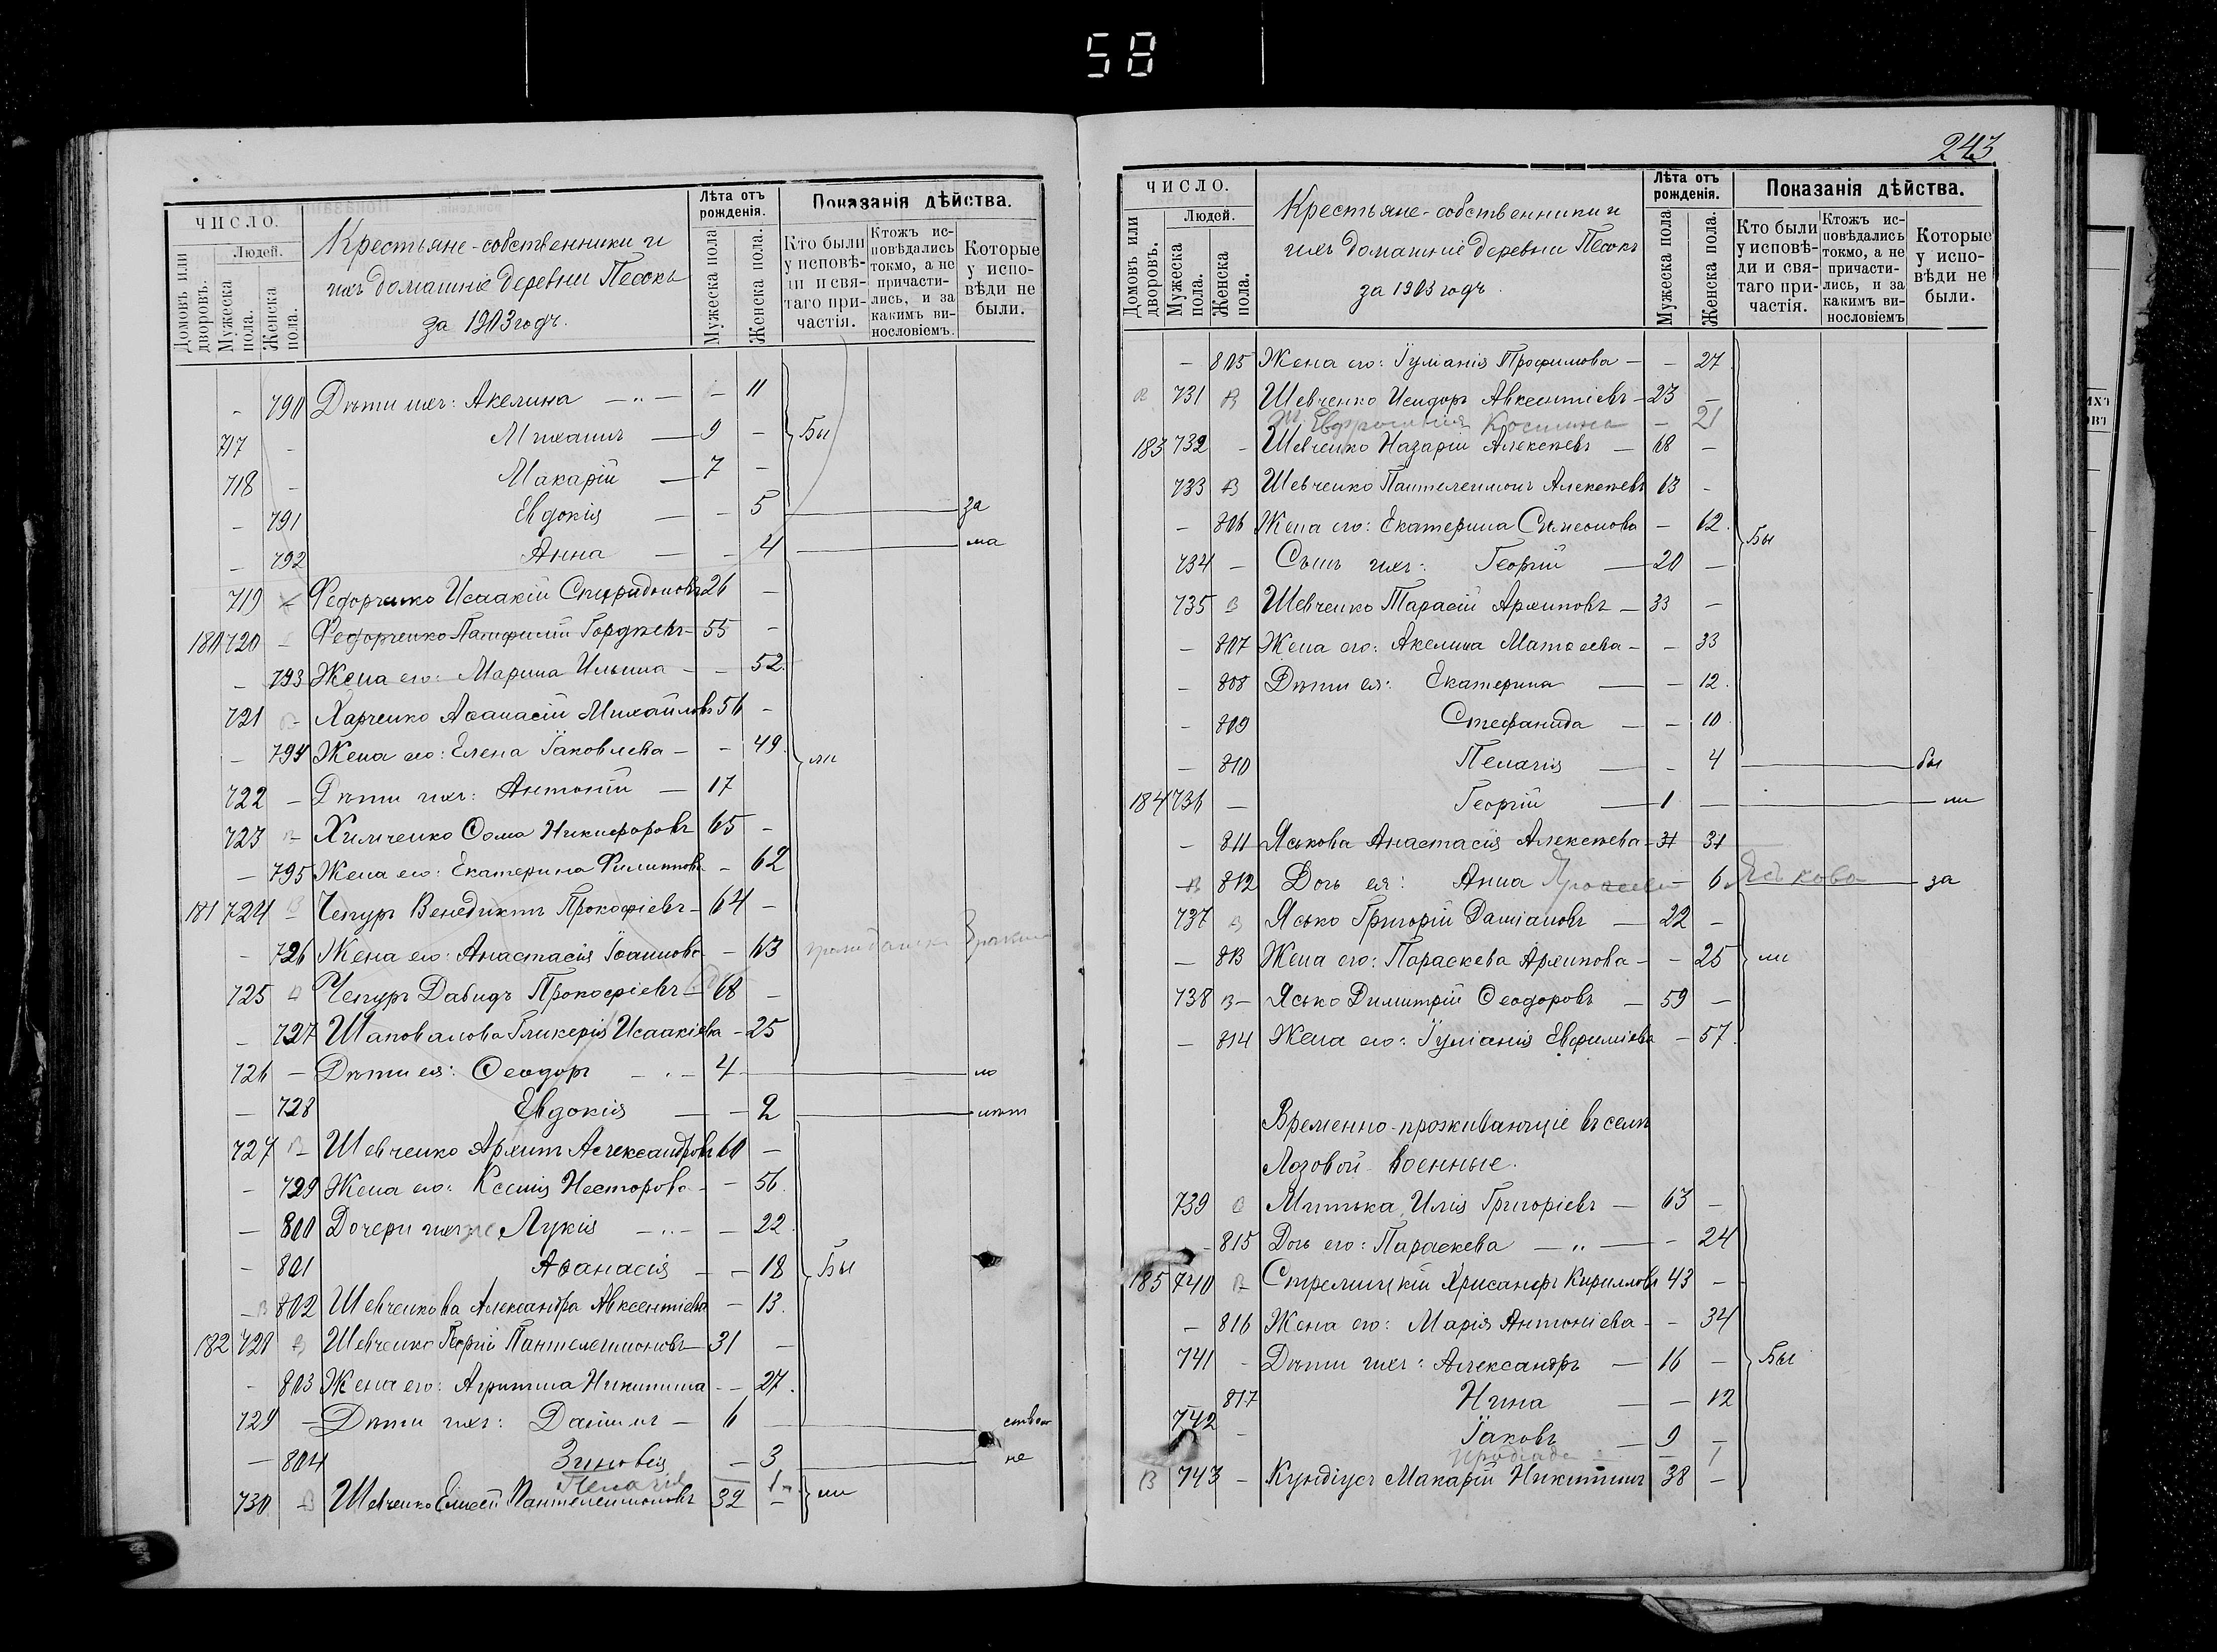 58
ЧИСЛО.
Людей.
Домовъ или дворовъ.
Мужеска пола.
Женска пола.
Крестьяне-собственники и
ихъ домашніе деревни Песокъ
за 1903 годъ.
Лѣта отъ рожденія.
Мужеска пола
Женска пола.
Показанія дѣйства.
Кто были у исповѣди и святаго причастія.
Ктожъ исповѣдались токмо, а не причастились, и за какимъ винословіемъ.
Которые у исповѣди не были.
- 790 Дѣти ихъ: Акелина - 11
717 - Михаилъ 9 - Бы
718 - Макарій 7 -
- 791 Евдокія - 5 за
- 792 Анна - 4 ма
719 Федорченко Исаакій Спиридоновъ 26 -
180 720 - Федорченко Памфилій Гордѣевъ 55 -
- 793 Жена его: Марина Ильина - 52
721 - Харченко Аѳанасій Михайловъ 56 -
- 794 Жена его: Елена Іаковлева - 49 ли
722 - Дѣти ихъ: Антоній 17
723 - Химченко Ѳома Никифоровъ 65 -
- 795 Жена его: Екатерина Филиппова - 62
181 724 - Чепуръ Венедиктъ Прокофіевъ 64 -
- 726 Жена его: Анастасія Іоаннова - 63
725 Чепуръ Давидъ Прокофіевъ 68 -
- 727 Шаповалова Гликерія Исаакіева - 25
726 - Дѣти ея: Ѳеодоръ 4 ло
- 728 Евдокія - 2 лѣт
727 В Шевченко Архипъ Александровъ 60 -
- 729 Жена его: Ксенія Несторова - 56
- 800 Дочери ихъ: Лукія - 22
- 801 Аѳанасія - 18 Бы
- В 802 Шевченкова Александра Авксентіева - 13
182 728 В Шевченко Георгій Пантелеимоновъ 31 -
- 803 Жена его: Агрипина Никитина - 27
729 - Дѣти ихъ: Даніилъ 6 -
- 804 Зиновія - 3 не
Пелагія 1
730 В Шевченко Елисей Пантелеимоновъ 32 - ли
243
ЧИСЛО.
Людей.
Домовъ или дворовъ.
Мужеска пола.
Женска пола.
Крестьяне-собственники и
ихъ домашніе деревни Песокъ
за 1903 годъ.
Лѣта отъ рожденія.
Мужеска пола
Женска пола.
Показанія дѣйства.
Кто были у исповѣди и святаго причастія.
Ктожъ исповѣдались токмо, а не причастились, и за какимъ винословіемъ
Которые у исповѣди не были.
- 805 Жена его: Іуліанія Трофимова - 27
В 731 В Шевченко Исидоръ Авксентіевъ 23 -
Ж. Евфросинія Космина - 21
183 732 - Шевченко Назарій Алексѣевъ 68 -
733 В Шевченко Пантелеимонъ Алексѣевъ 63 -
- 806 Жена его: Екатерина Симеонова - 62 Бы
734 - Сынъ ихъ: Георгій 20 -
735 В Шевченко Тарасій Архиповъ 33 -
- 807 Жена его: Акелина Матѳеева - 33
- 808 Дѣти ея: Екатерина - 12
- 809 Стефанида - 10
- 810 Пелагія - 4 бы
184 736 - Георгій 1 - ли
- 811 Яськова Анастасія Алексѣева 31
- В 812 Дочь ея: Анна - 6 Яськова за
737 В Ясько Григорій Даміановъ 22 -
- 813 Жена его: Параскева Архипова - 25 ли
738 В - Ясько Димитрій Ѳеодоровъ 59 -
- 814 Жена его: Іуліанія Евфиміева - 57
Временно-проживающіе въ селѣ
Лозовой военные.
739 В Митька Илія Григоріевъ 63 -
- 815 Дочь его: Параскева - 24
185 740 В Стрелицкій Хрисанфъ Кирилловъ 43 -
- 816 Жена его: Марія Антоніева - 34
741 - Дѣти ихъ: Александръ 16 - Бы
817 Нина - 12
742 - Іаковъ 9 -
Иродіада - 1
В 743 - Кундіусъ Макарій Никитинъ 38 -